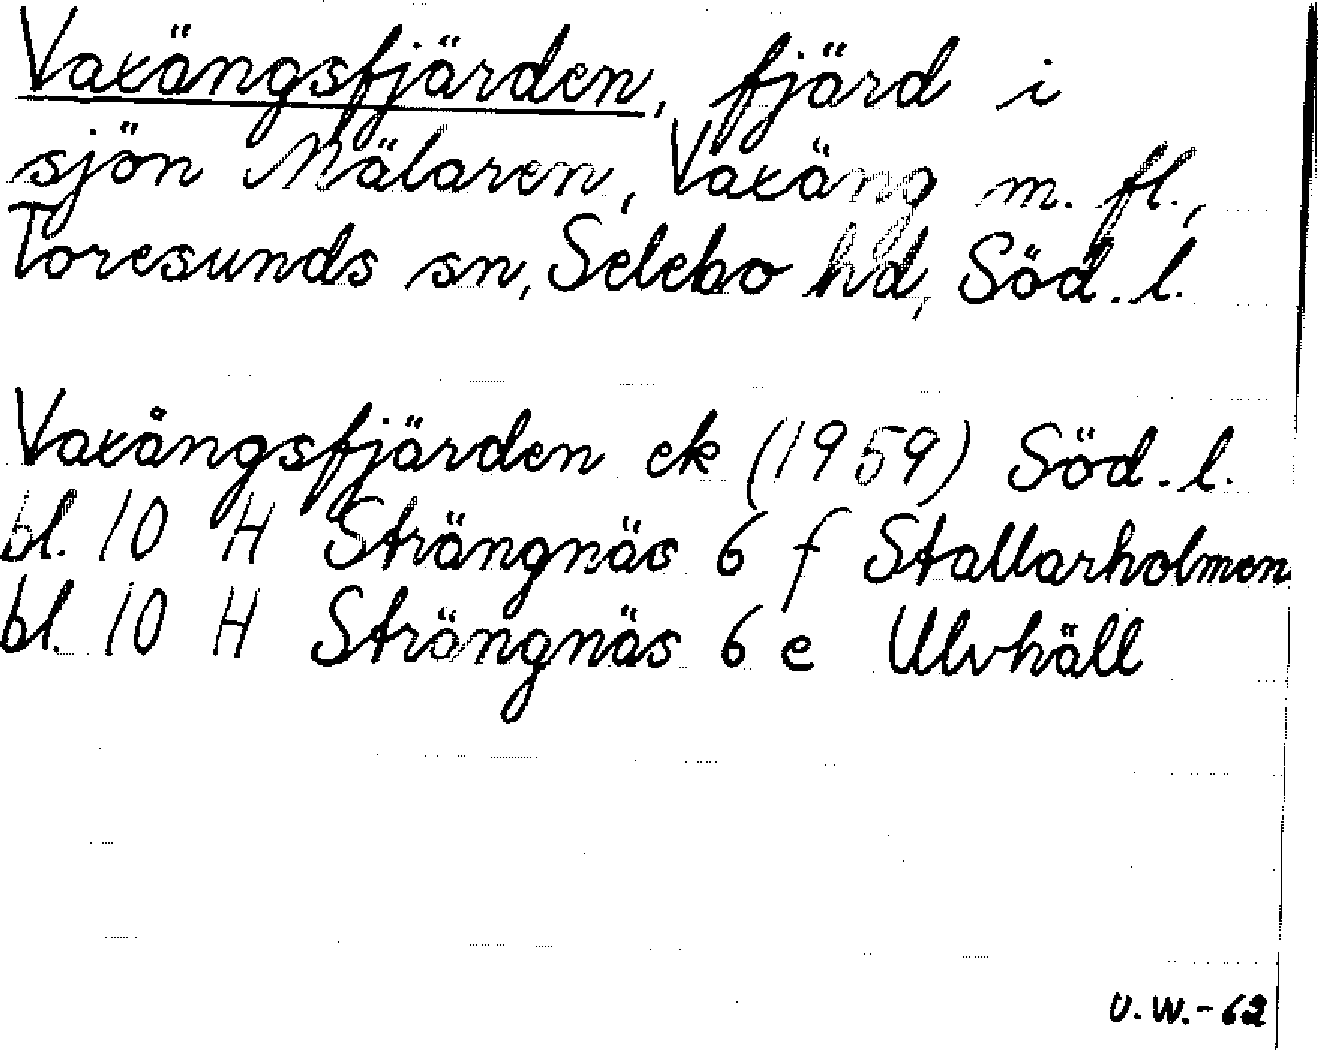 Vaxängsfjärden, fjärd i
sjön Mälaren, Vaxäng m. fl.,
Toresunds sn, Selebo hd, Söd. l.
Vaxångsfjärden ek (1959) Söd. l.
bl. 10 H Strängnäs 6 f Stallarholmen
bl. 10 H Strängnäs 6 e Ulvhäll
U.W.-62